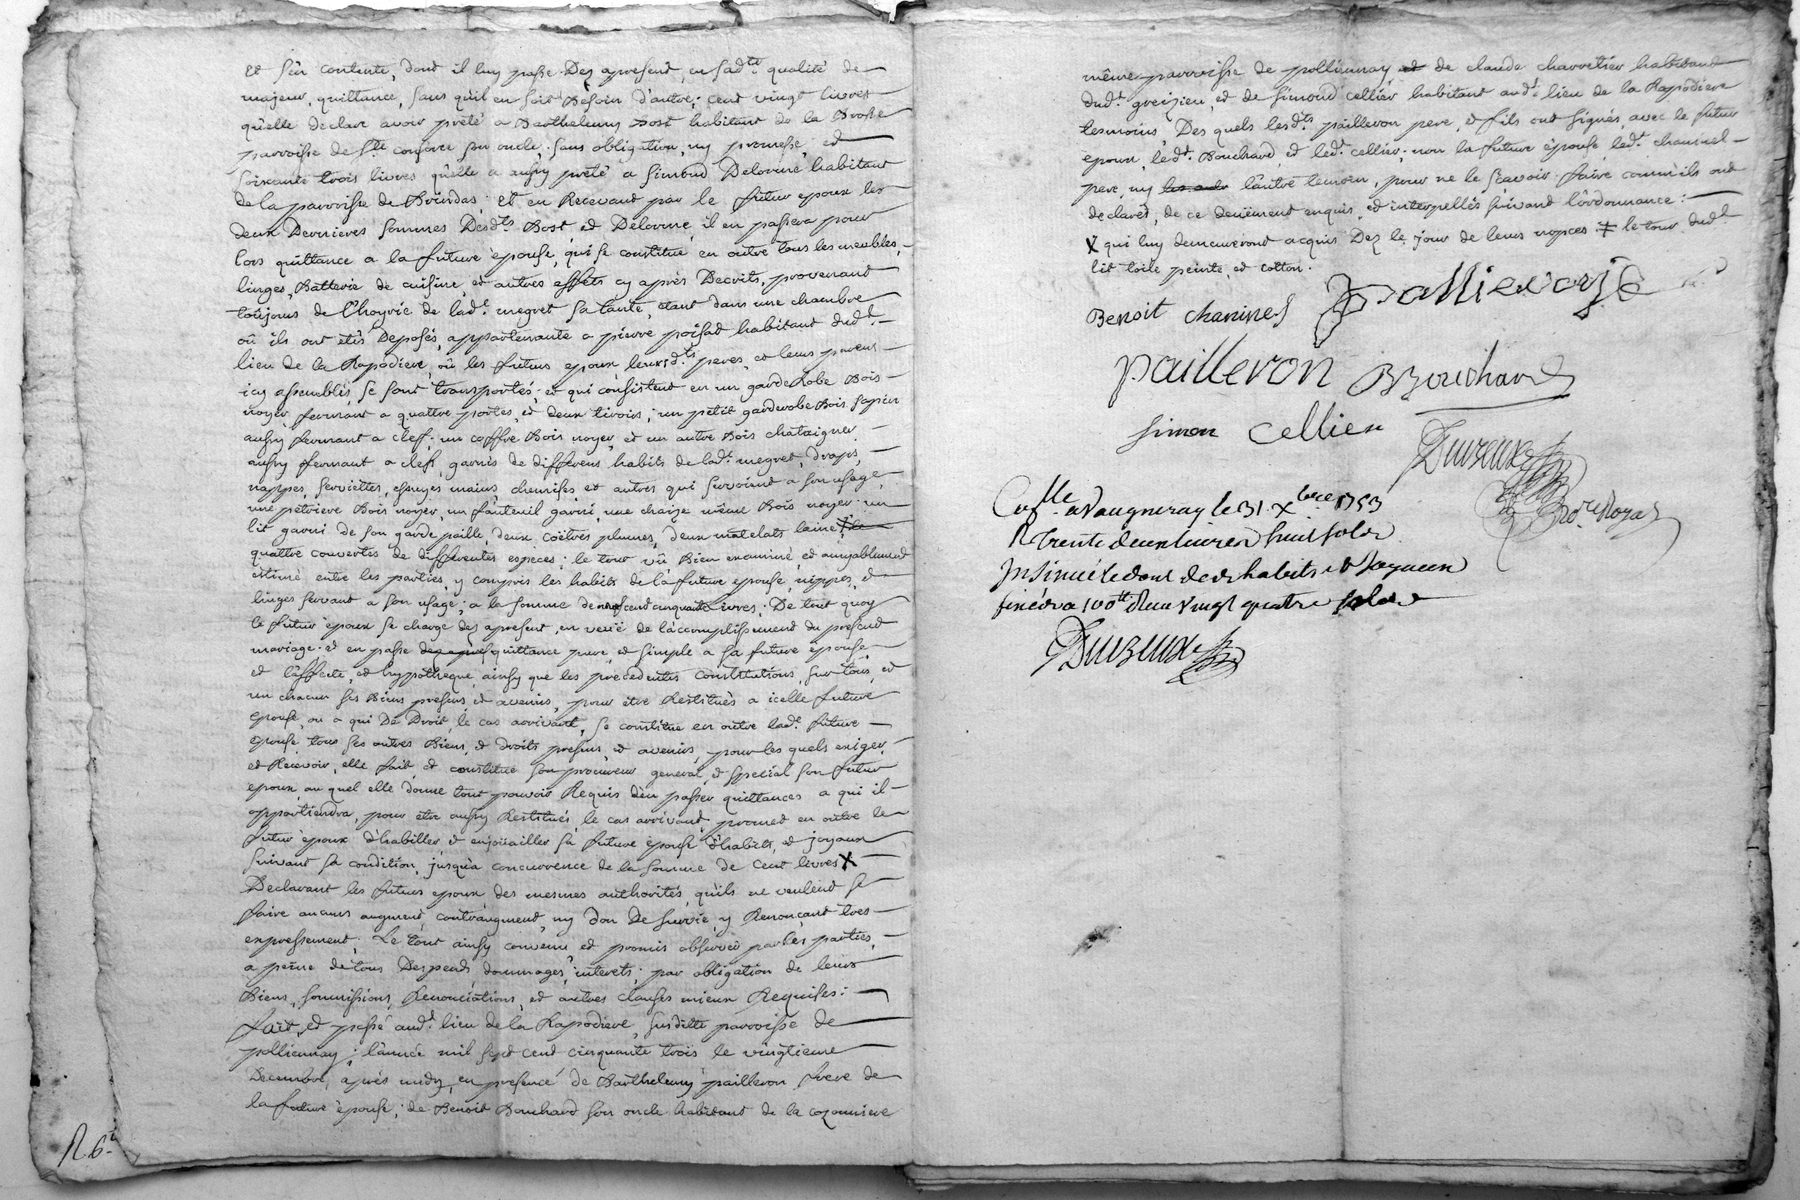 et s'en contente, dont il luy passe Dez apresent, en sad.te qualité de
majeur, quittance, sans qu'il en soit Besoin d'autre; cent vingt livres
qu'elle declare avoir prêté a Barthelemy Bost habitant de la Brosse
parroisse de S.te consorce son oncle, sans obligation, ny promesse, et
soixante trois livres qu'elle a aussy prêté a Simond Delorme habitant
de la parroisse de Brindas; et en Recevant par le futur epoux les
deux Dernieres sommes Desd.ts Bost et Delorme, il en passera pour
lors quittance a la future épouse, qui se constitue en outre tous les meubles,
linges, Batterie de cuisine, et autres effets cy après Decrits, provenant
toujours de l'hoyrie de lad.e megret sa tante, étant dans une chambre
où ils ont étés Deposés, appartenante a pierre poisat habitant dud.t
lieu de la Rapodiere, où les futurs epoux, leursd.ts peres, et leurs parens
icy assemblés, se sont transportés; et qui consistent en un garderobe Bois
noyer fermant a quattre portes, et deux tiroirs; un petit garderobe Bois sapin
aussy fermant a clef; un coffre Bois noyer, et un autre Bois chataigner
aussy fermant a clef, garnis de differens habits de lad.t megret, draps,
nappes, serviettes, essuyes mains, chemises et autres qui servoient a son usage
une pétriere Bois noyer, un fauteuil garni, une chaize même Bois noyer un
lit garni de son garde paille, deux coëtres plumes, deux matelats laine,
quattre couvertes de differentes especes; le tout vû Bien examiné, et amyablement
estimé entre les parties, y compris les habits de la future epouse, nippes, et
linges servant a son usage, a la somme de neuf cent cinquante livres; De tout quoy
le futur epoux se charge dez apresent, en veüe de l'accomplissement du present
mariage, et en passe quittance pure, et simple a sa future épouse,
et l'affecte, et hypotheque, ainsy que les precedentes constitutions, sur tous, et
un chacun ses Biens presens, et avenirs, pour etre Restitués a icelle future
epouse, ou a qui De Droit, le cas arrivant, se constitue en outre lad.t future
epouse tous ses autres Biens, et droits presens, et avenirs, pour les quels exiger,
et Recevoir, elle fait, et constitue son procureur general, et special son futur
epoux au quel elle donne tout pouvoir Requis d'en passer quittances a qui il
appartiendra, pour etre aussy Restitués le cas arrivant, promet en outre le
futur epoux d'habiller et enjoüailler sa future épouse d'habits, et joyaux
suivant sa condition, jusqu'a concurrence de la somme de cent livres X
Declarant les futurs epoux des mesmes authorités, qu'ils ne veulent se
faire aucuns augment, contr'augment, ny don De survie, y Renonçant tres
expressement; Le tout ainsy convenu et promis observer par les parties,
a peine de tous Despends, dommages, interets; par obligation de leurs
Biens, sommissions, Renonciations, et autres clauses mieux Requises:
fait, et passé aud.t lieu de la Rapodiere, susditte parroisse de
pollionnay; l'année mil sept cent cinquante trois le vingtieme
Decembre, après midy, en presence de Barthelemy pailleron frere de
la future épouse; de Benoit Bouchard son oncle habitant de la cozonniere
R 6.t
même parroisse de pollionnay de claude charretier habitant
dud.t greizieu, et de simond cellier habitant aud.t lieu de la Rapodiere
tesmoins, Des quels lesd.ts pailleron pere, et fils ont signés, avec le futur
epoux, led.t Bouchard, et led.t cellier; non la future épouse, led.t chaninel
pere, ny l'autre temoin, pour ne le sçavoir faire comm'ils ont
declarés, de ce deuëment enquis, et interpellés suivant l'ordonnance:
X qui luy demeureront acquis Dez le jour de leurs nopces: ⨎ le tour dud.t
lit toile peinte, et cotton.
Benoit chaninel
pailleron BBouchard
simon cellier
Duvzeux
No.re Royal
Con.lle a Vaugneray le 31 Xbre 1753
R trente deux livres huit sols
Insinué le don des habits et Joyaux
fixés a 100ll Reçu vingt quatre sols
Duvzeux